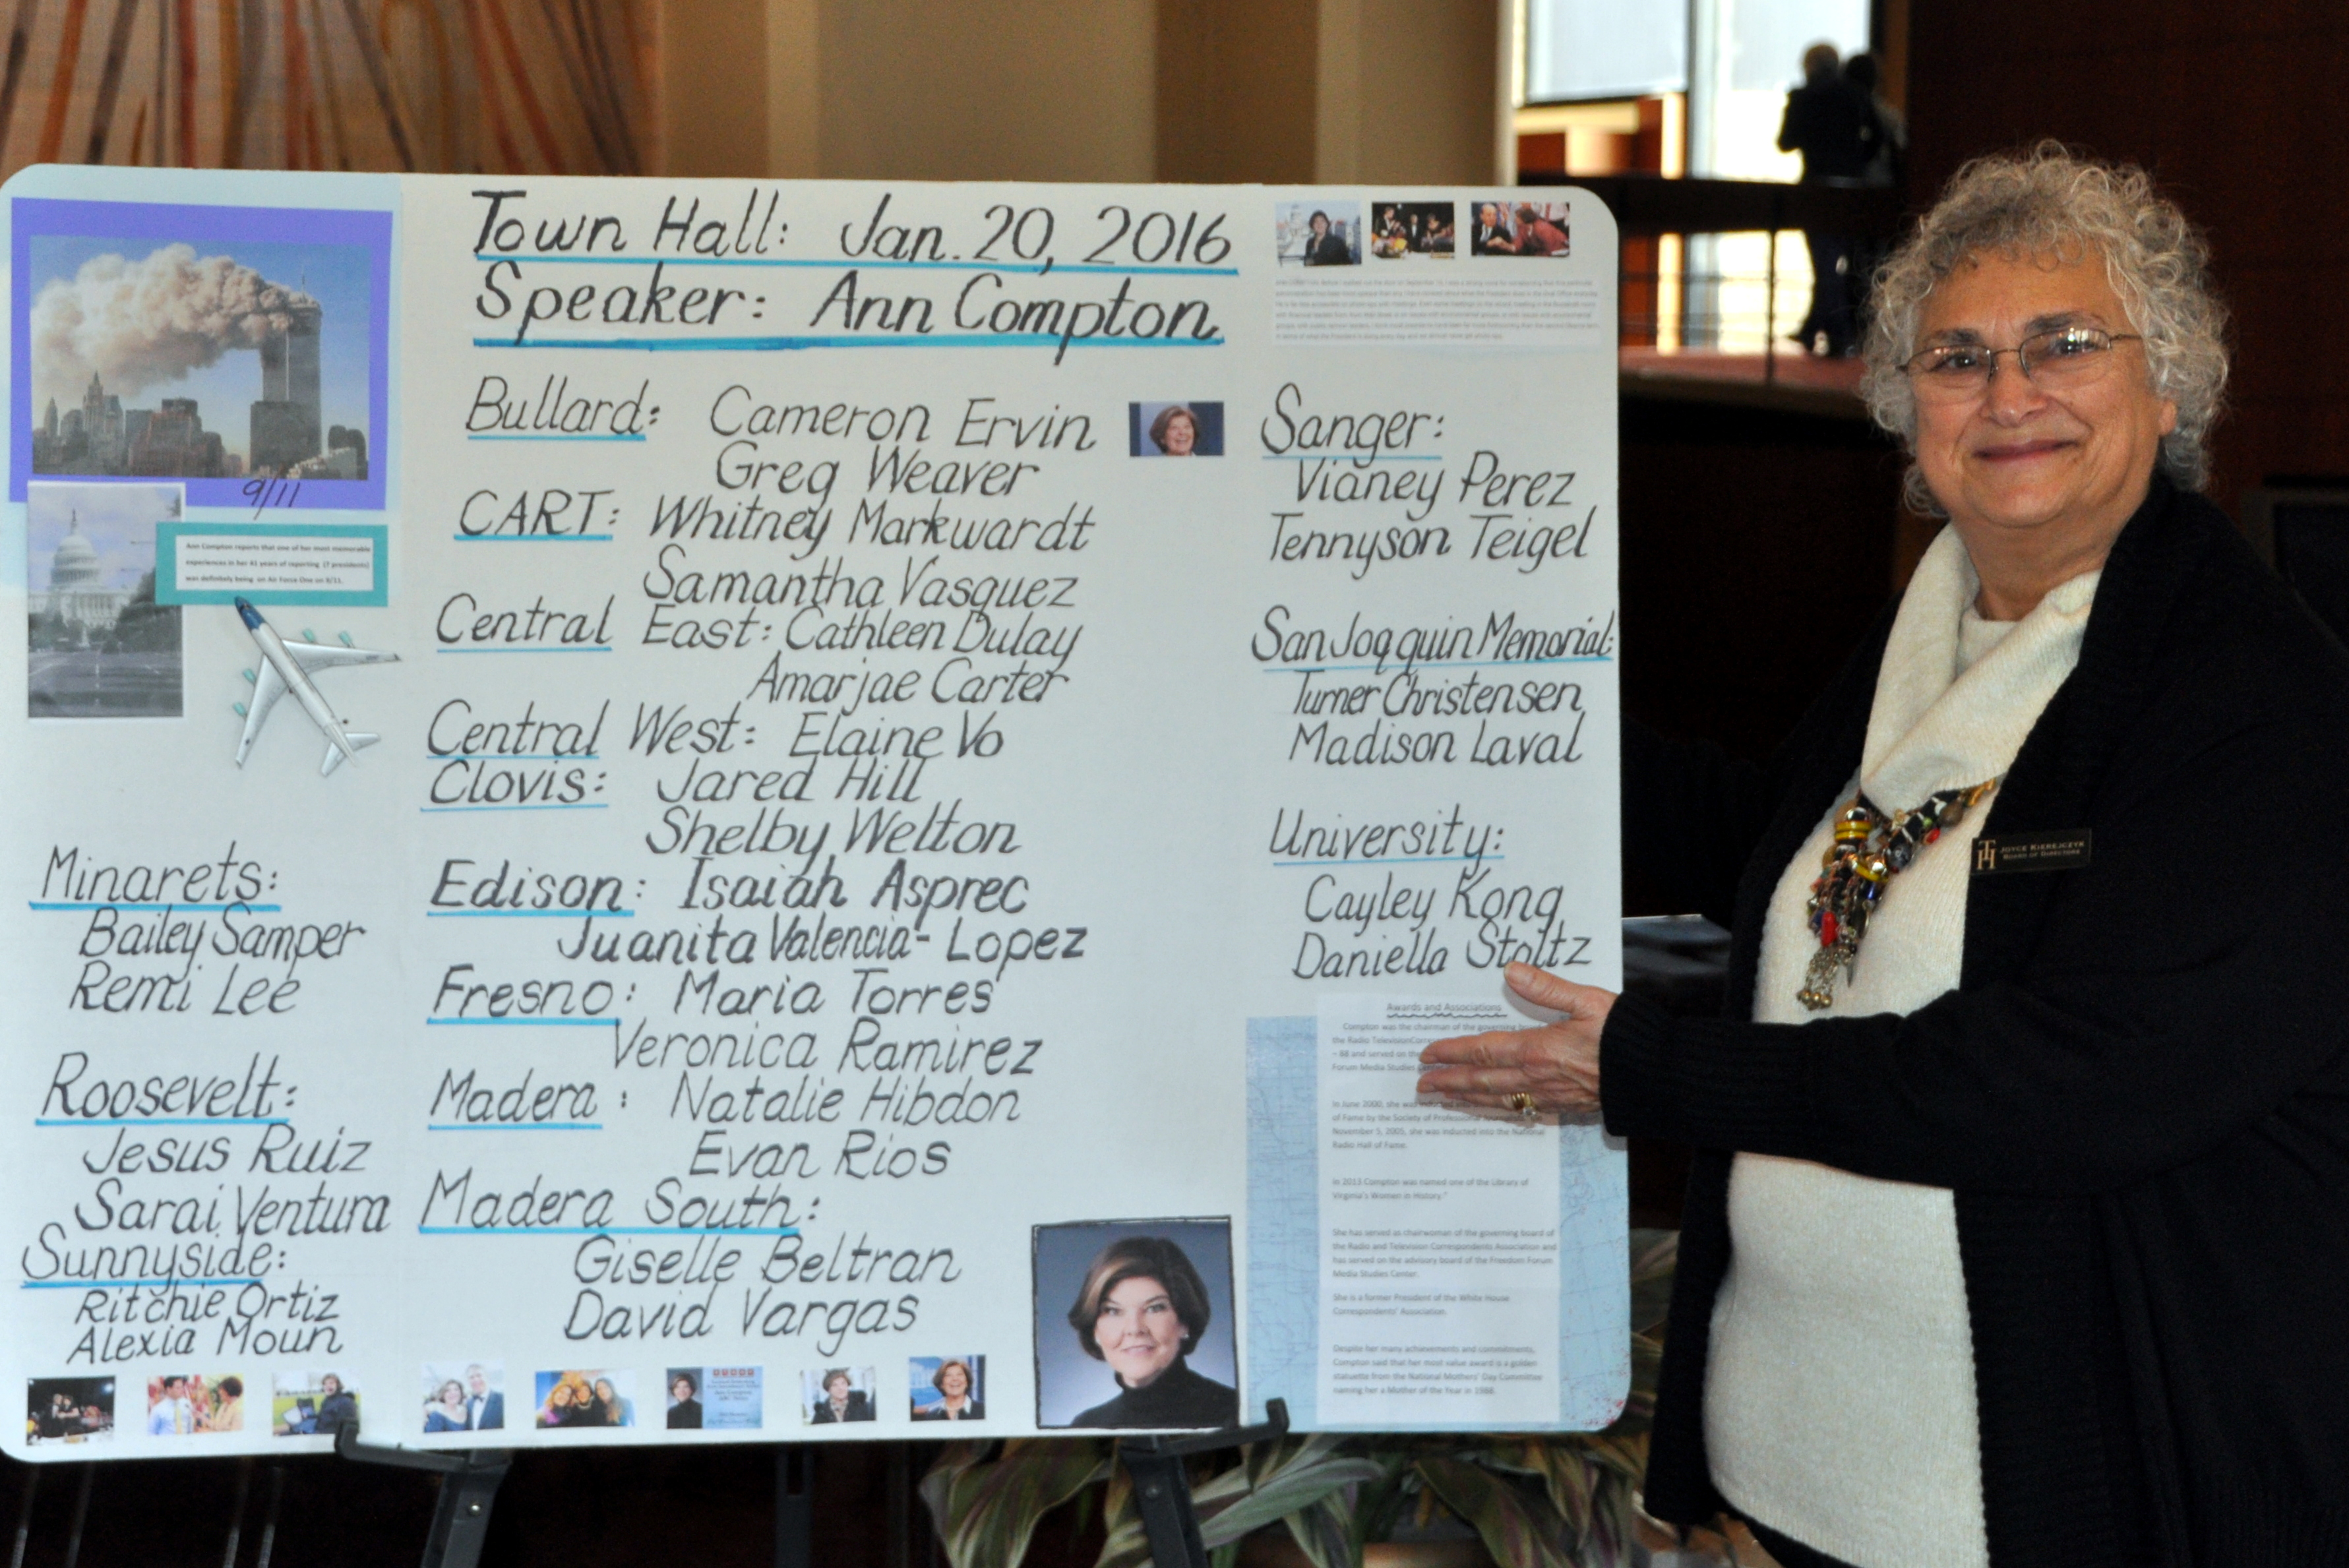 Town Hall: Jan. 20, 2016
Speaker: Ann Compton
9/11
Ann Compton reports that one of her most memorable
experiences in her 41 years of reporting (7 presidents)
was definitely being on Air Force One on 9/11.
Minarets:
Bailey Samper
Remi Lee
Roosevelt:
Jesus Ruiz
Sarai Ventura
Sunnyside:
Ritchie Ortiz
Alexia Moun
Bullard: Cameron Ervin
Greg Weaver
CART: Whitney Markwardt
Samantha Vasquez
Central East: Cathleen Dulay
Amarjae Carter
Central West: Elaine Vo
Clovis: Jared Hill
Shelby Welton
Edison: Isaiah Asprec
Juanita Valencia-Lopez
Fresno: Maria Torres
Veronica Ramirez
Madera: Natalie Hibdon
Evan Rios
Madera South:
Giselle Beltran
David Vargas
Sanger:
Vianey Perez
Tennyson Teigel
San Joaquin Memorial:
Turner Christensen
Madison Laval
University:
Cayley Kong
Daniella Stoltz
Awards and Associations
Compton was the chairman of the governing board
the Radio TelevisionCorre
– 88 and served on the
Forum Media Studies
In June 2000, she was inducted
of Fame by the Society of Professional
November 5, 2005, she was inducted into the National
Radio Hall of Fame.
In 2013 Compton was named one of the Library of
Virginia's Women in History."
She has served as chairwoman of the governing board of
the Radio and Television Correspondents Association and
has served on the advisory board of the Freedom Forum
Media Studies Center.
She is a former President of the White House
Correspondents' Association.
Despite her many achievements and commitments,
Compton said that her most value award is a golden
statuette from the National Mothers' Day Committee
naming her a Mother of the Year in 1988.
TH
Joyce Kierejczyk
Board of Directors